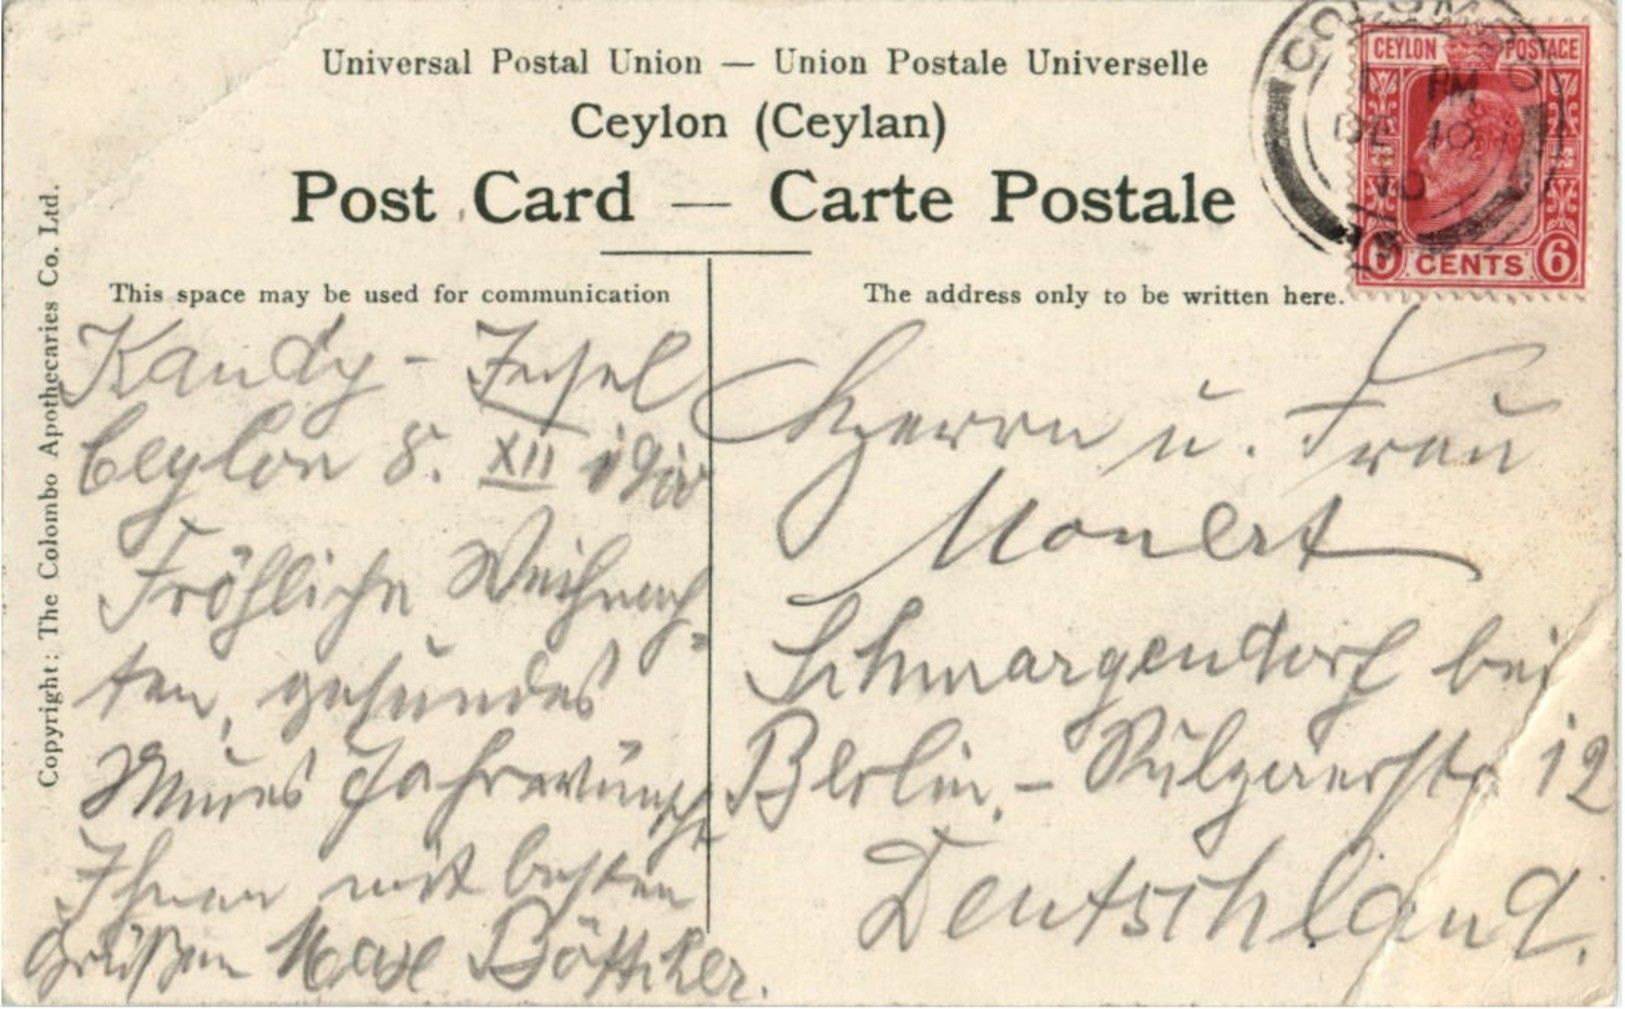 Universal Postal Union — Union Postale Universelle
Ceylon (Ceylan)
Post Card — Carte Postale
CEYLON POSTAGE
6 CENTS 6
COLOMBO
PM
DE 10
10
Copyright: The Colombo Apothecaries Co. Ltd.
This space may be used for communication
Kandy - Insel
Ceylon 8. XII 1910
Fröhliche Weihnach-
ten, gesundes
Neues Jahr wünscht
Ihnen mit besten
Grüßen Max Böttcher.
The address only to be written here.
Herrn u. Frau
Schmargendorf bei
Berlin. - 12
Deutschland.